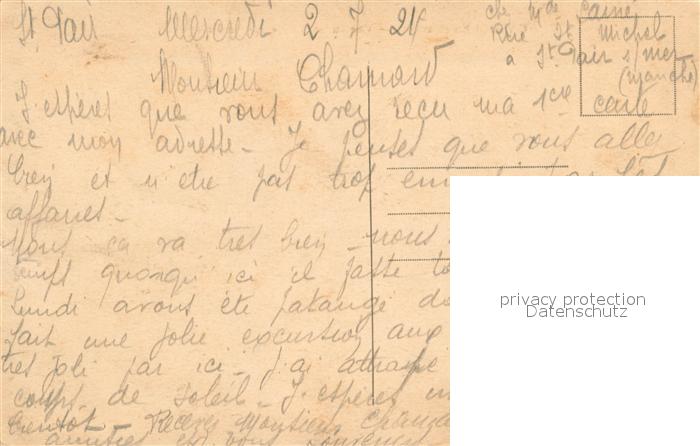 St. Pair Mercredi 2.7.24
chez Mde
Rue St Michel
à St. Pair s/mer
(manche)
Monsieur
J'espères que vous avez reçu ma 1ere carte
avec mon adresse - Je penses que vous allez
bien et n'etre pas trop
affaires -
Nous ça va tres bien - nous
temps quoiqu' ici il fasse
Lundi avons été patangé
fait une jolie excursion aux
tres joli par ici - j'ai attrapé
coups de soleil - J'espères
bientôt - Recevez Monsieur
amitiés et
privacy protection
Datenschutz